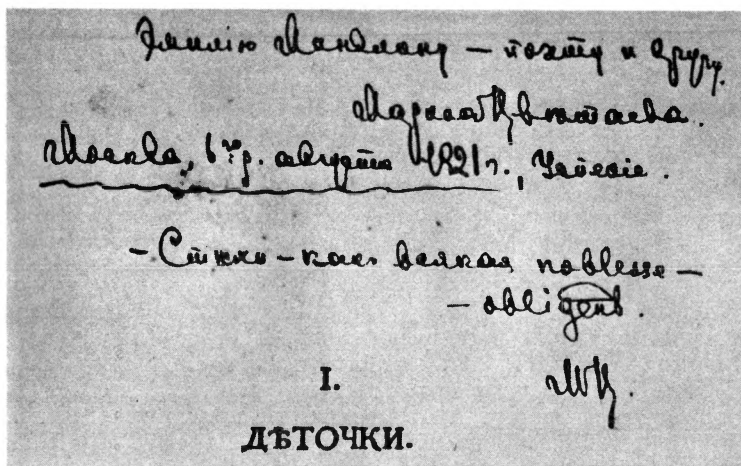 Эмилію Миндлину — поэту и другу.
Марина Цвѣтаева.
Москва, р. августа 1921 г., Успеніе.
— Стихи — какъ всякая noblesse —
— obligent.
МЦ.
I.
ДѢТОЧКИ.